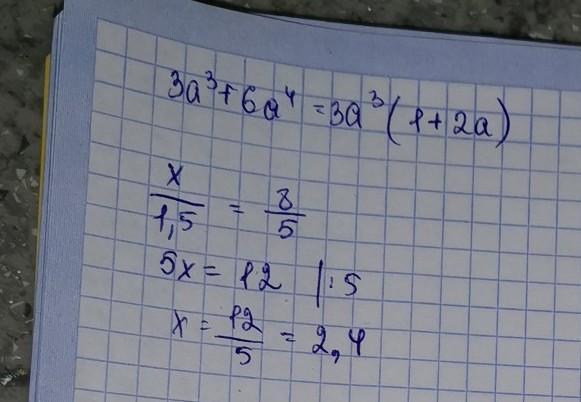 3a³+6a⁴=3a³(1+2a)
x/1,5 = 8/5
5x = 12 |:5
x = 12/5 = 2,4